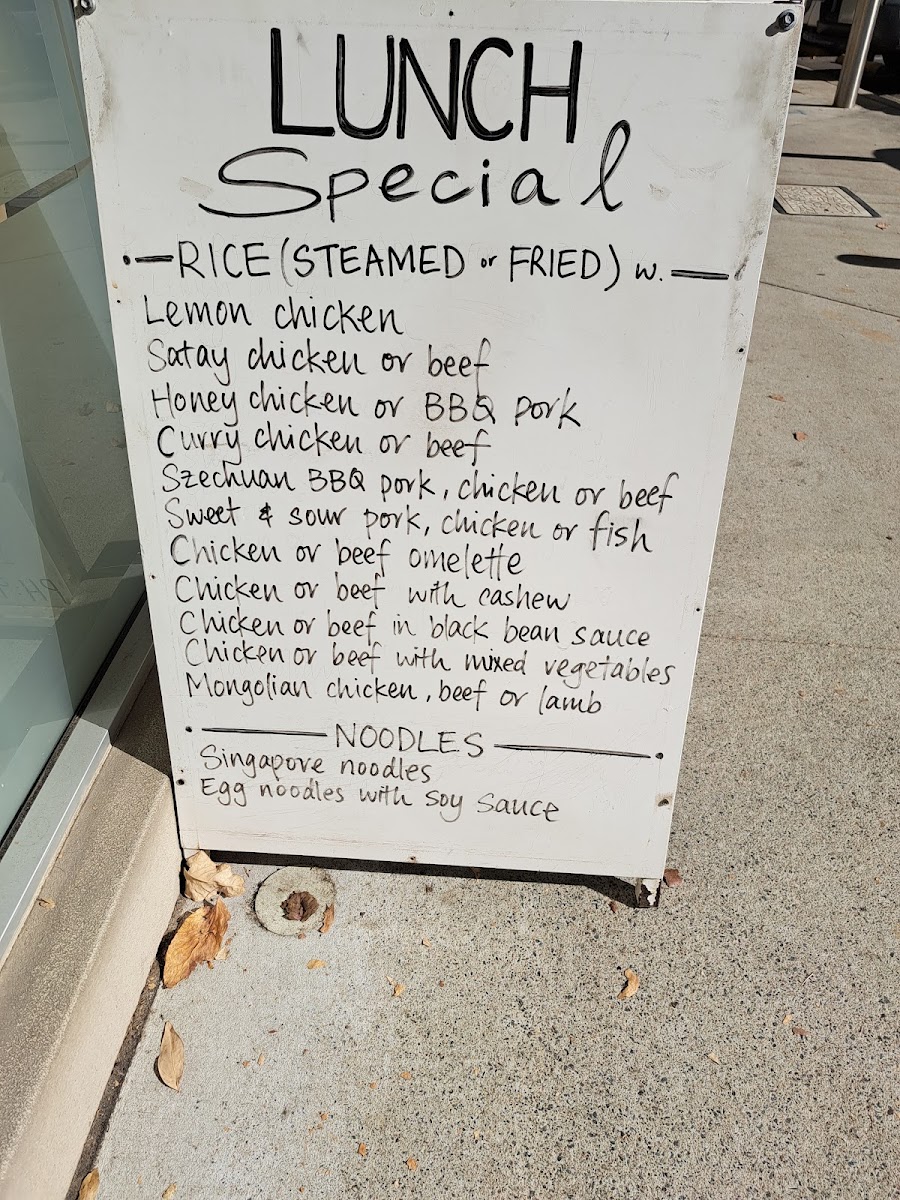 LUNCH
Special
RICE (STEAMED or FRIED) w.
Lemon chicken
Satay chicken or beef
Honey chicken or BBQ pork
Curry chicken or beef
Szechuan BBQ pork, chicken or beef
Sweet & sour pork, chicken or fish
Chicken or beef omelette
Chicken or beef with cashew
Chicken or beef in black bean sauce
Chicken or beef with mixed vegetables
Mongolian chicken, beef or lamb
NOODLES
Singapore noodles
Egg noodles with soy sauce